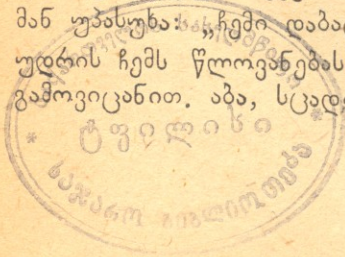 მან უპასუხა: „ჩემი დაბა
უდრის ჩემს წლოვანებას
გამოვიცანით. აბა, სცად
ტფილისი
საჯარო ბიბლიოთეკა